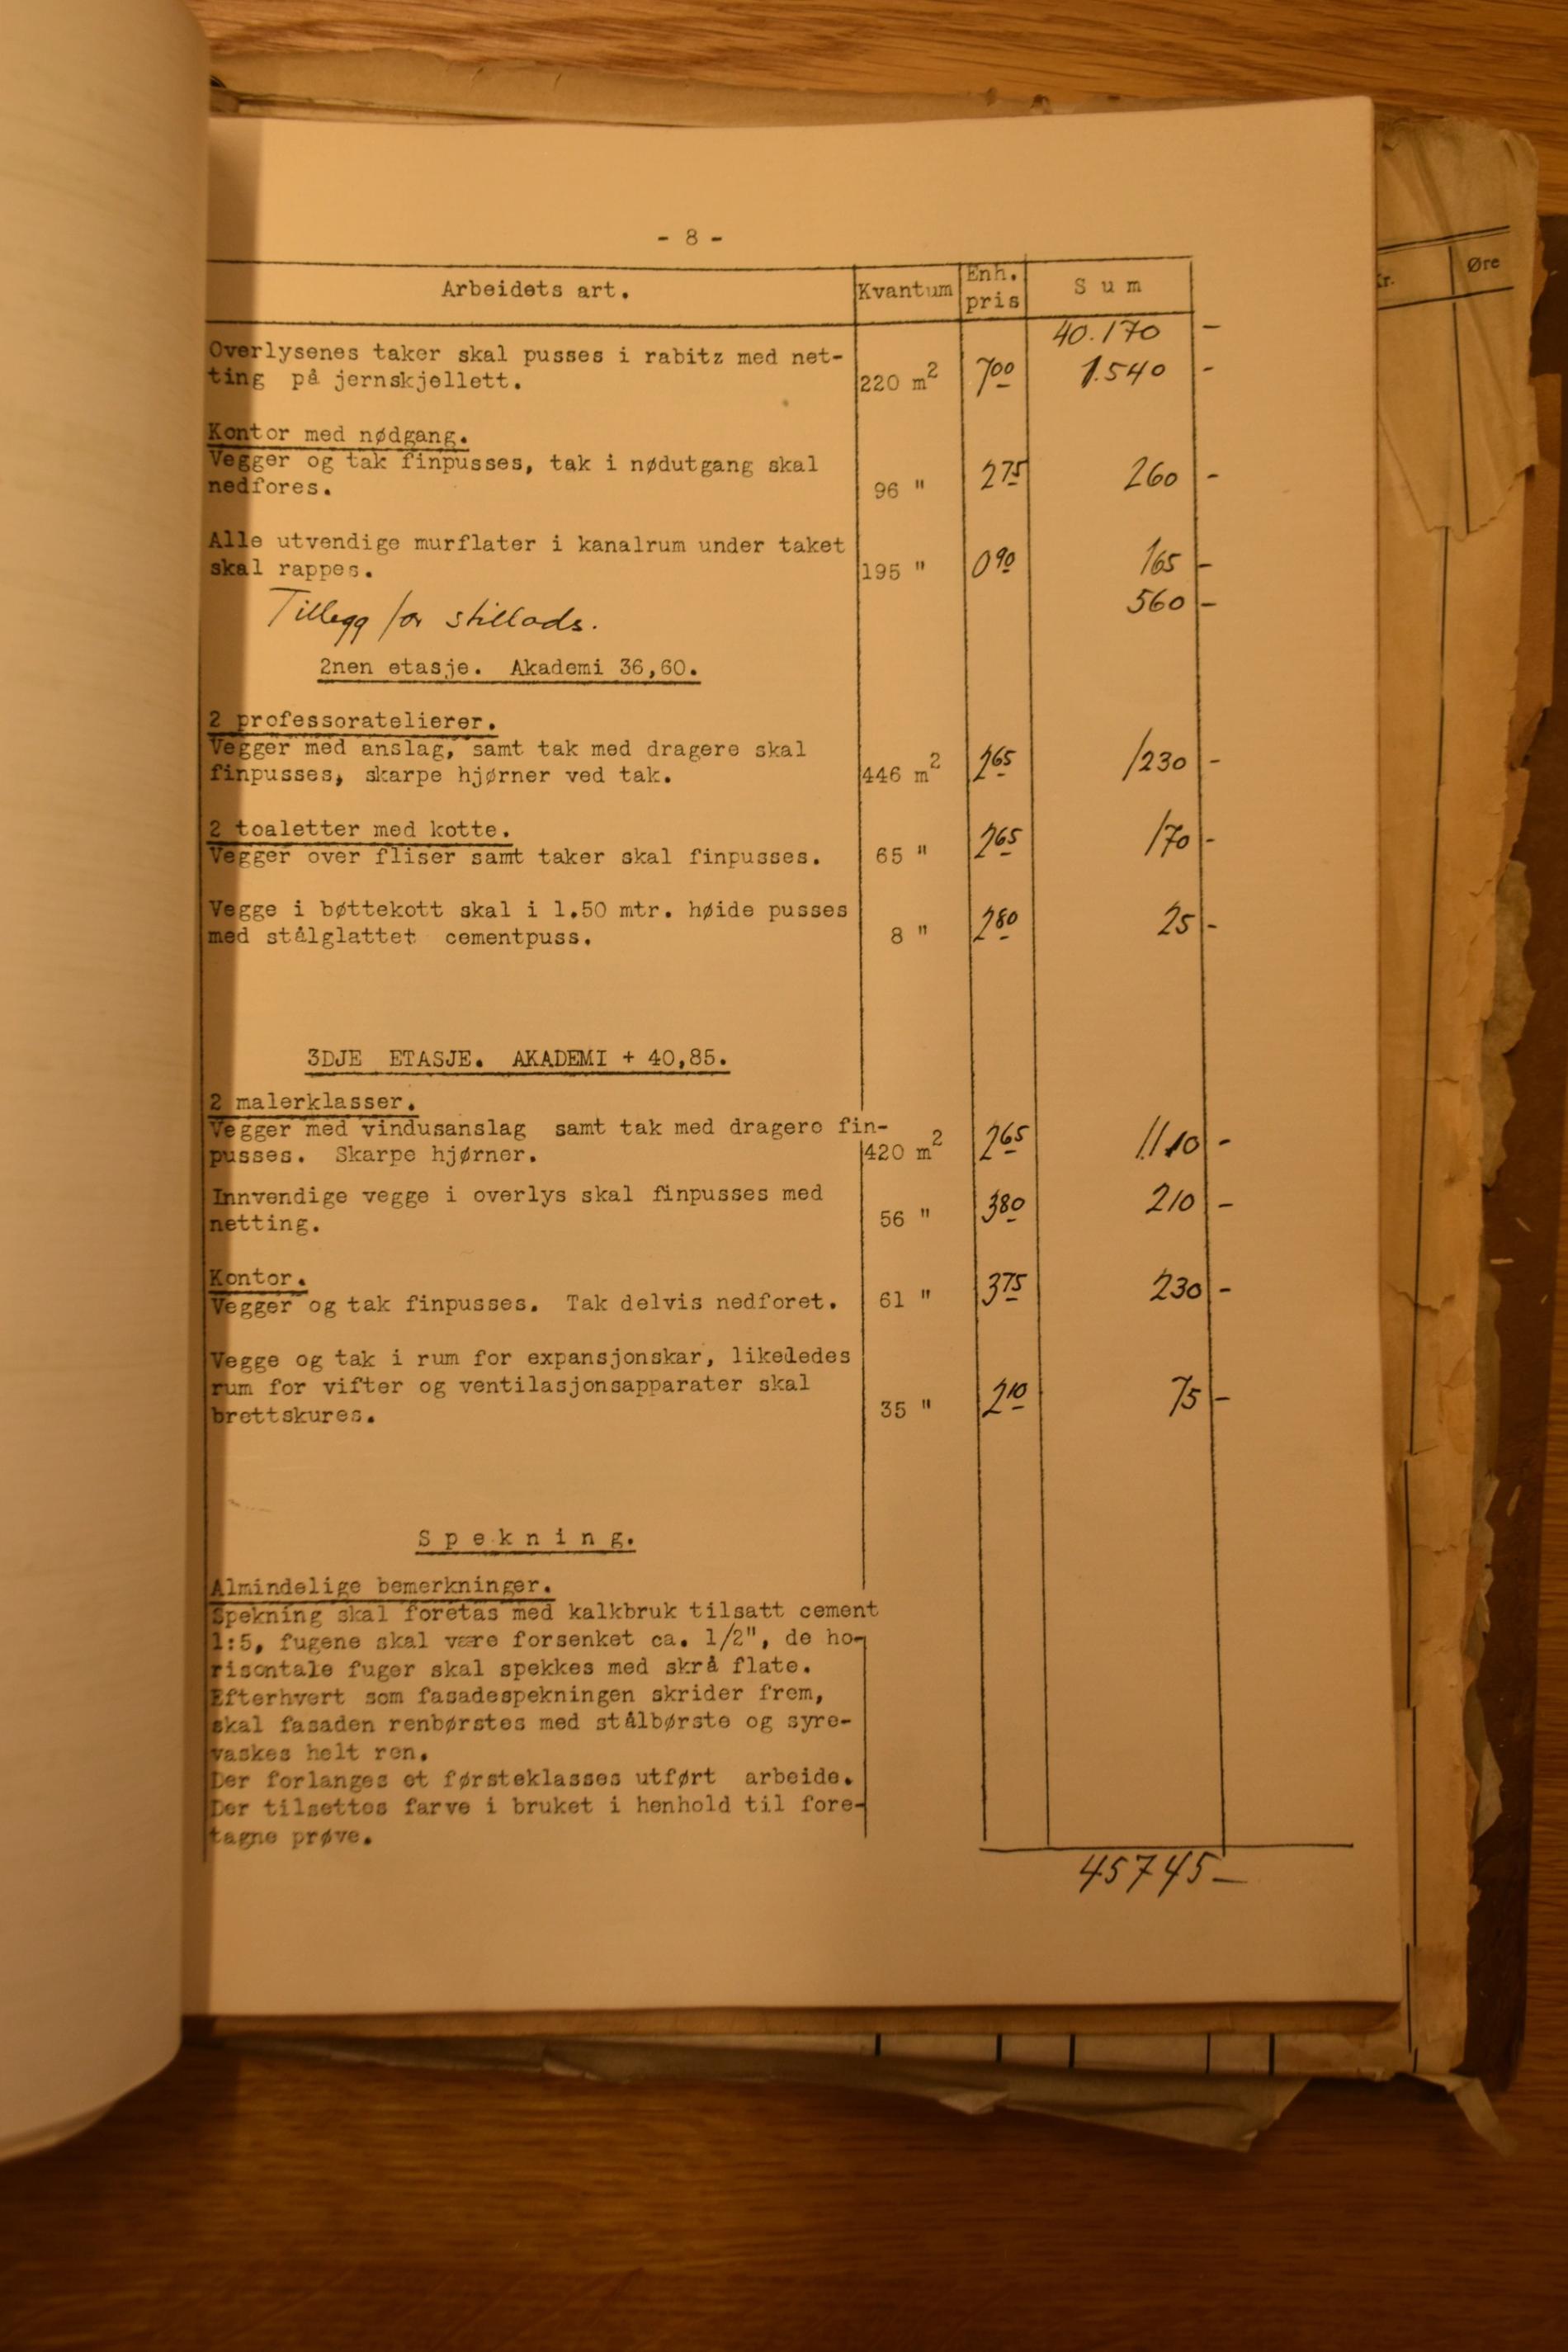 - 8 -
Arbeidets art. Kvantum Enh. pris Sum
40.170 -
Overlysenes taker skal pusses i rabitz med net-
ting på jernskjellett. 220 m² 7.00 1.540 -
Kontor med nødgang.
Vegger og tak finpusses, tak i nødutgang skal
nedfores. 96 " 2.75 260 -
Alle utvendige murflater i kanalrum under taket
skal rappes. 195 " 0.90 165 -
Tillegg for stillads. 560 -
2nen etasje. Akademi 36,60.
2 professoratelierer.
Vegger med anslag, samt tak med dragere skal
finpusses, skarpe hjørner ved tak. 446 m² 2.65 1230 -
2 toaletter med kotte.
Vegger over fliser samt taker skal finpusses. 65 " 2.65 170 -
Vegge i bøttekott skal i 1.50 mtr. høide pusses
med stålglattet cementpuss. 8 " 2.80 25 -
3DJE ETASJE. AKADEMI + 40,85.
2 malerklasser.
Vegger med vindusanslag samt tak med dragere fin-
pusses. Skarpe hjørner. 420 m² 2.65 1.110 -
Innvendige vegge i overlys skal finpusses med
netting. 56 " 3.80 210 -
Kontor.
Vegger og tak finpusses. Tak delvis nedforet. 61 " 3.75 230 -
Vegge og tak i rum for expansjonskar, likeledes
rum for vifter og ventilasjonsapparater skal
brettskures. 35 " 2.10 75 -
Spekning.
Almindelige bemerkninger.
Spekning skal foretas med kalkbruk tilsatt cement
1:5, fugene skal være forsenket ca. 1/2", de ho-
risontale fuger skal spekkes med skrå flate.
Efterhvert som fasadespekningen skrider frem,
skal fasaden renbørstes med stålbørste og syre-
vaskes helt ren.
Der forlanges et førsteklasses utført arbeide.
Der tilsettes farve i bruket i henhold til fore-
tagne prøve.
45745 -
Øre